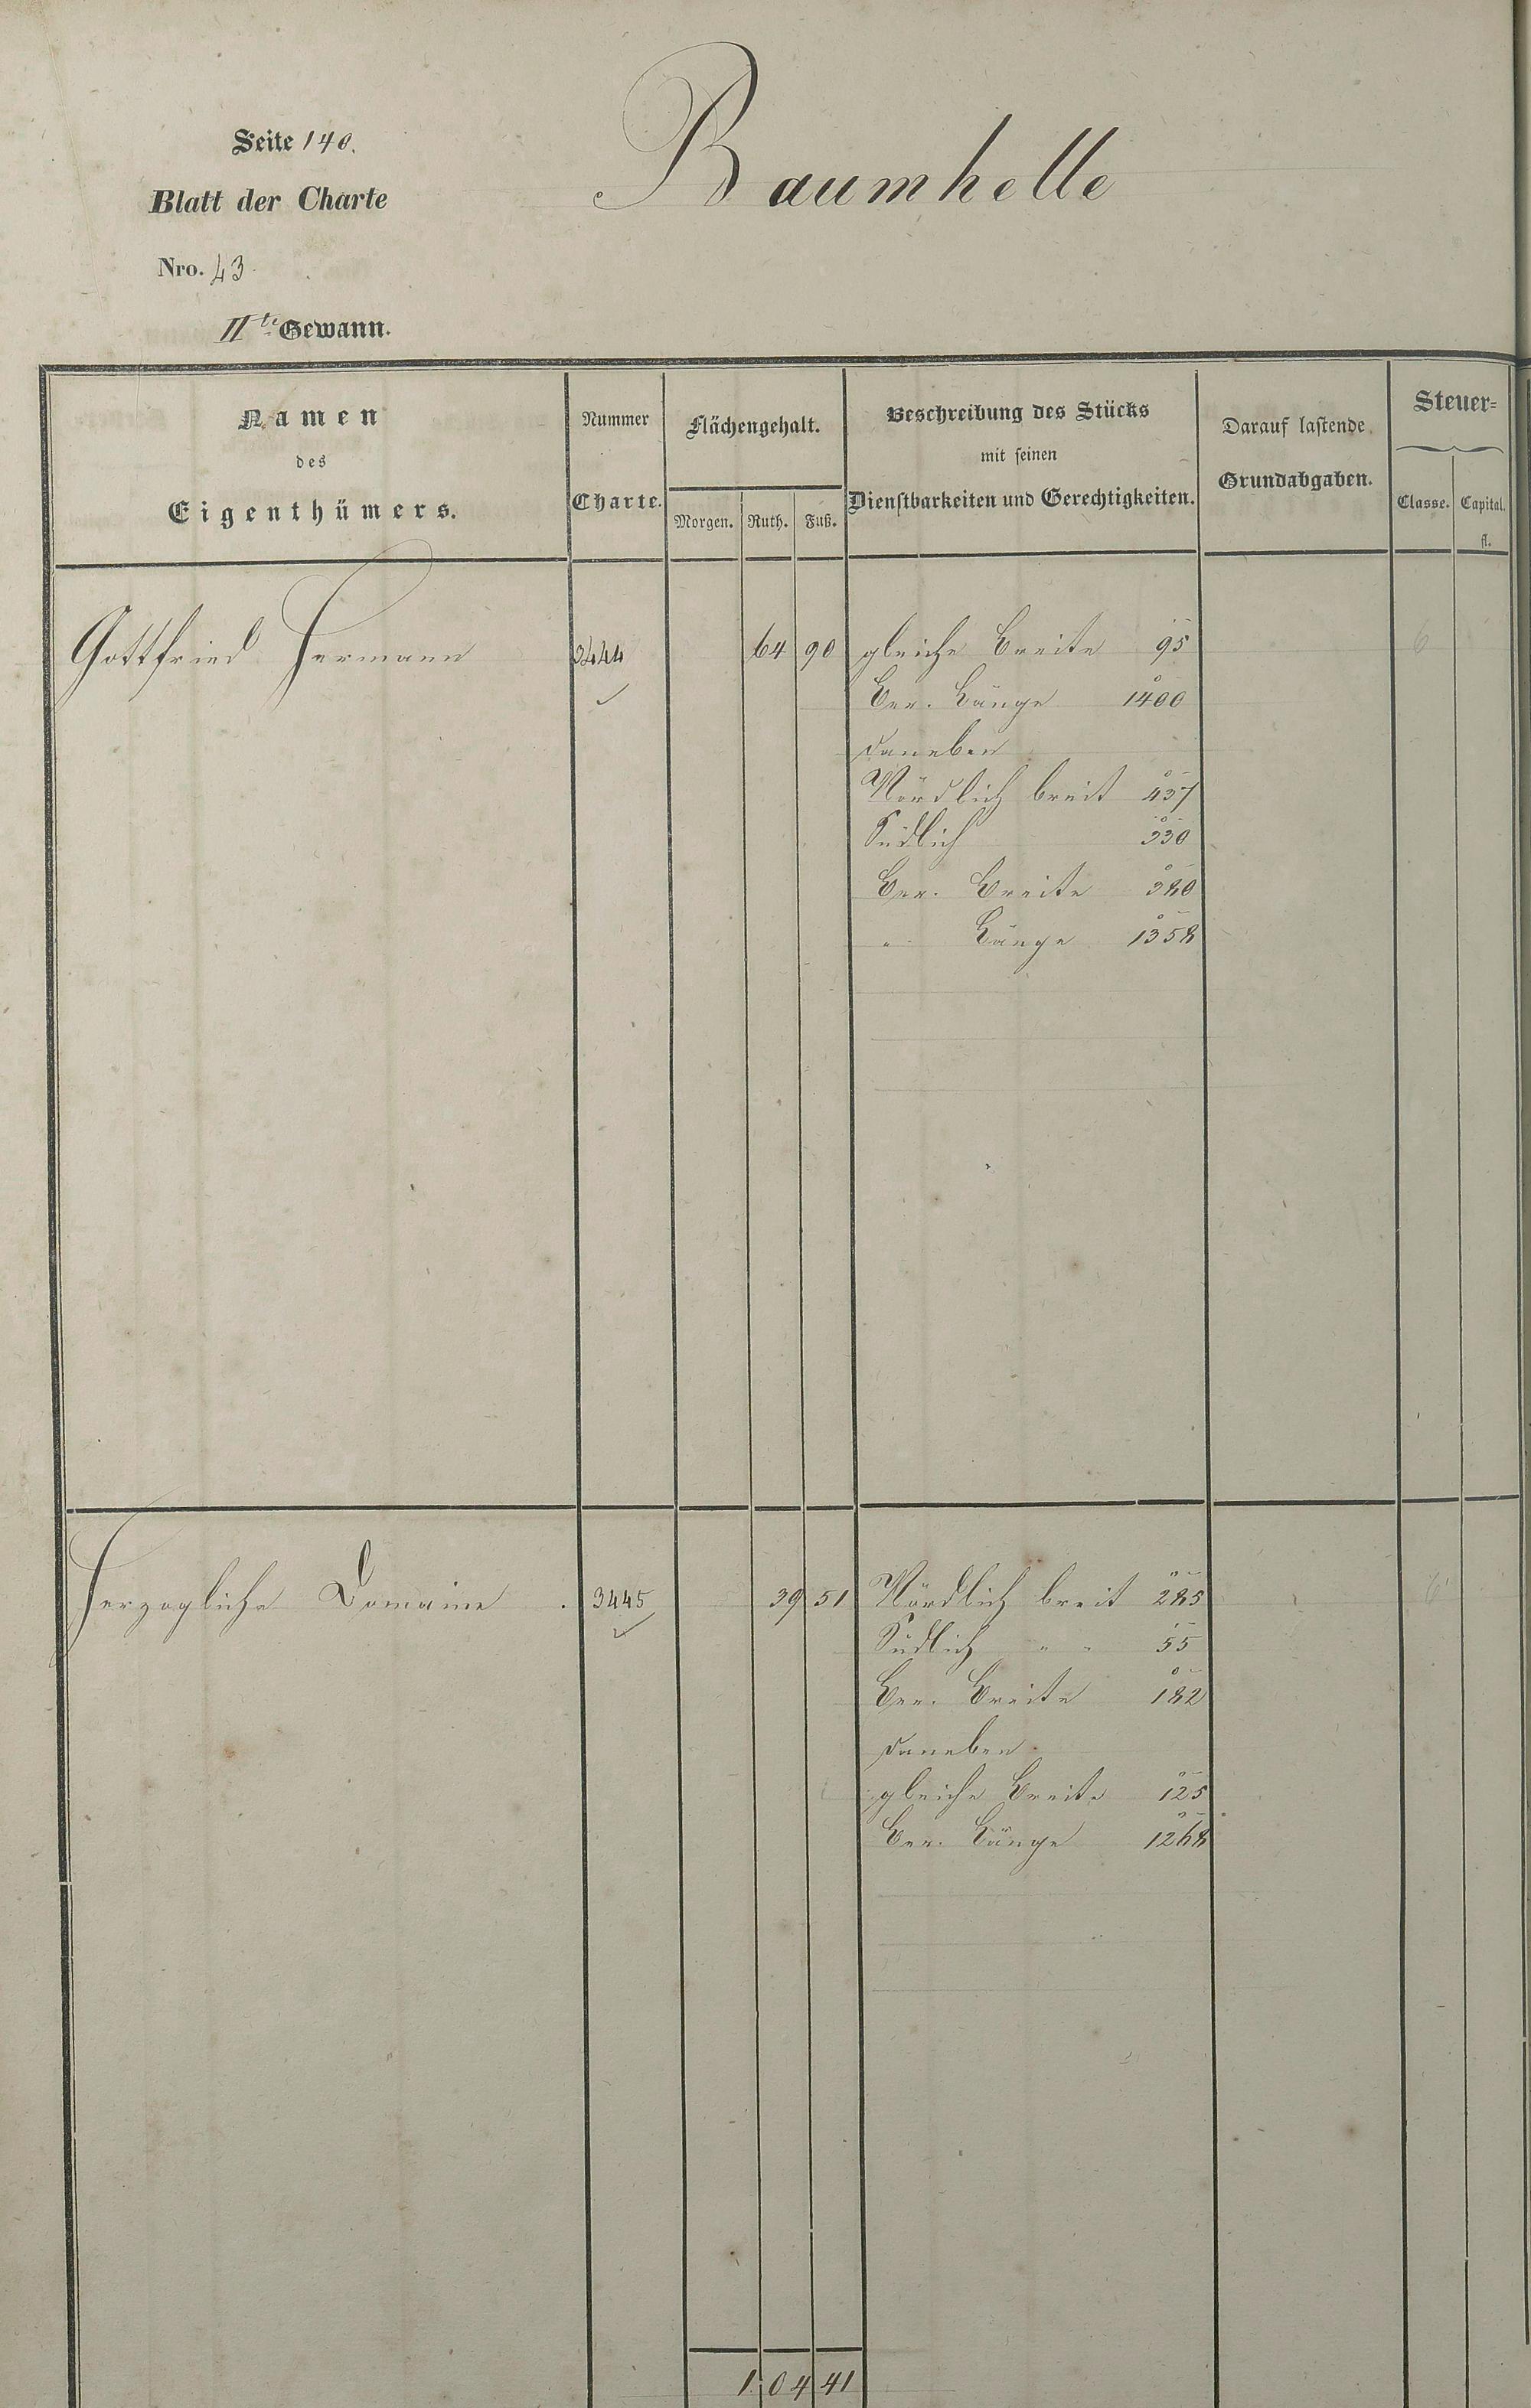 Seite 140.
Baumhelle
Blatt der Charte
Nro. 43
IIte Gewann.
Namen
des
Eigenthümers.
Nummer
Charte.
Flächengehalt.
Morgen. Ruth. Fuß.
Beschreibung des Stücks
mit seinen
Dienstbarkeiten und Gerechtigkeiten.
Darauf lastende
Grundabgaben.
Steuer=
Classe. Capital.
fl.
Gottfried Hermann 3444 64 90 gleiche Breite 95 6
Ber. Länge 1400
daneben
Nördlich breit 437
Südlich 330
Ber. Breite 380
" Länge 1358
Herzogliche Domaine. 3445 39 51 Nördlich breit 285 6
Südlich " " 55
Ber. Breite 182
daneben
gleiche Breite 125
Ber. Länge 1268
1 04 41